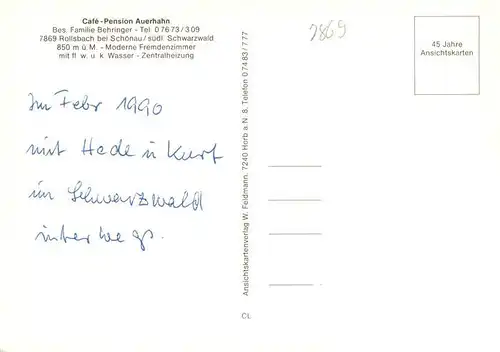 Café-Pension Auerhahn
Bes. Familie Behringer - Tel. 0 76 73 / 3 09
7869 Rollsbach bei Schönau / südl. Schwarzwald
850 m ü. M. - Moderne Fremdenzimmer
mit fl. w. u. k. Wasser - Zentralheizung
7869
45 Jahre
Ansichtskarten
Im Febr 1990
mit Hede u Kurt
im Schwarzwald
unterwegs.
Ansichtskartenverlag W. Feldmann, 7240 Horb a. N. 8, Telefon 0 74 83 / 7 77
CL